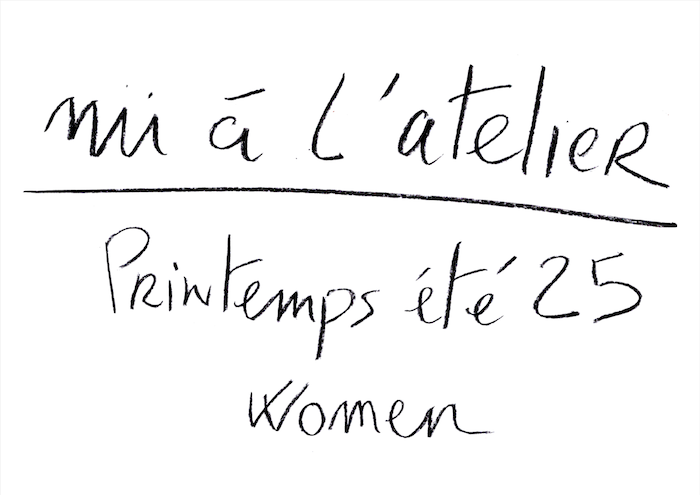 nü à l'atelier
Printemps été 25
Women